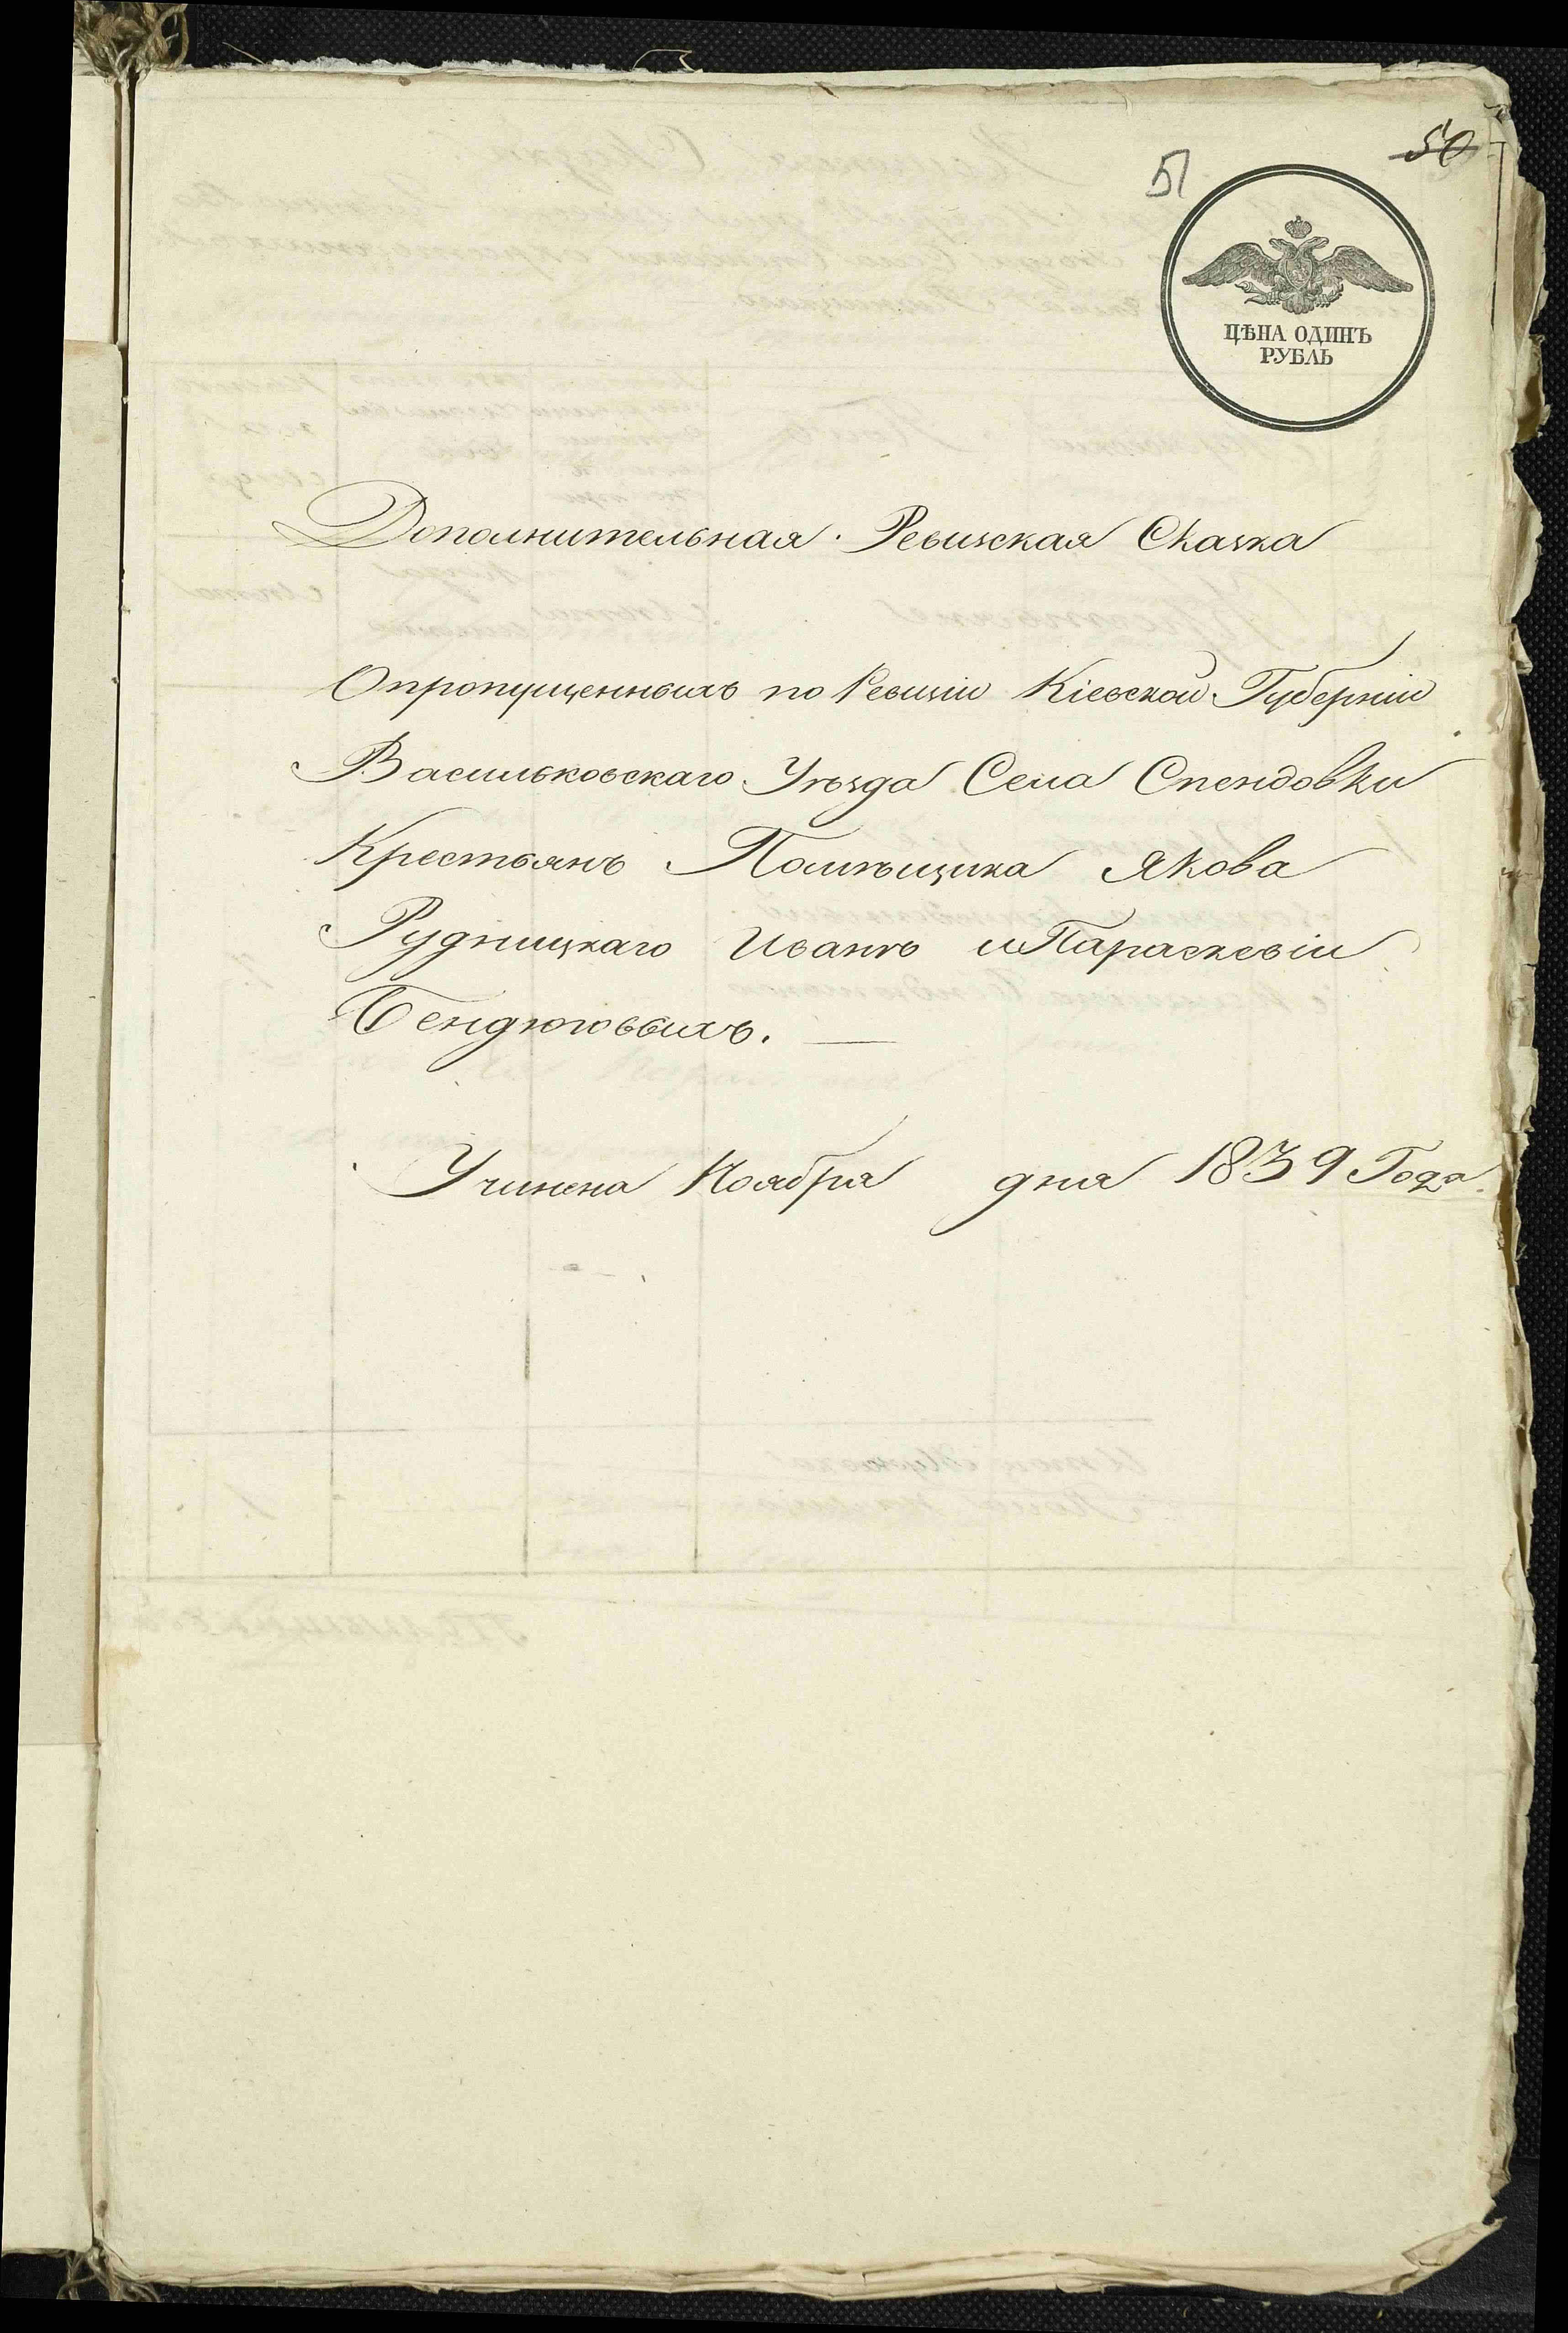 50
51
ЦѢНА ОДИНЪ
РУБЛЬ
Дополнительная Ревизская Сказка
Опропущенныхъ по Ревизіи Кіевской Губерніи
Васильковскаго Уѣзда Села Спендовки
Крестьянъ Помѣщика Якова
Рудницкаго Иванѣ и Параскевіи
Бендюговыхъ.
Учинена Ноября дня 1839 Года